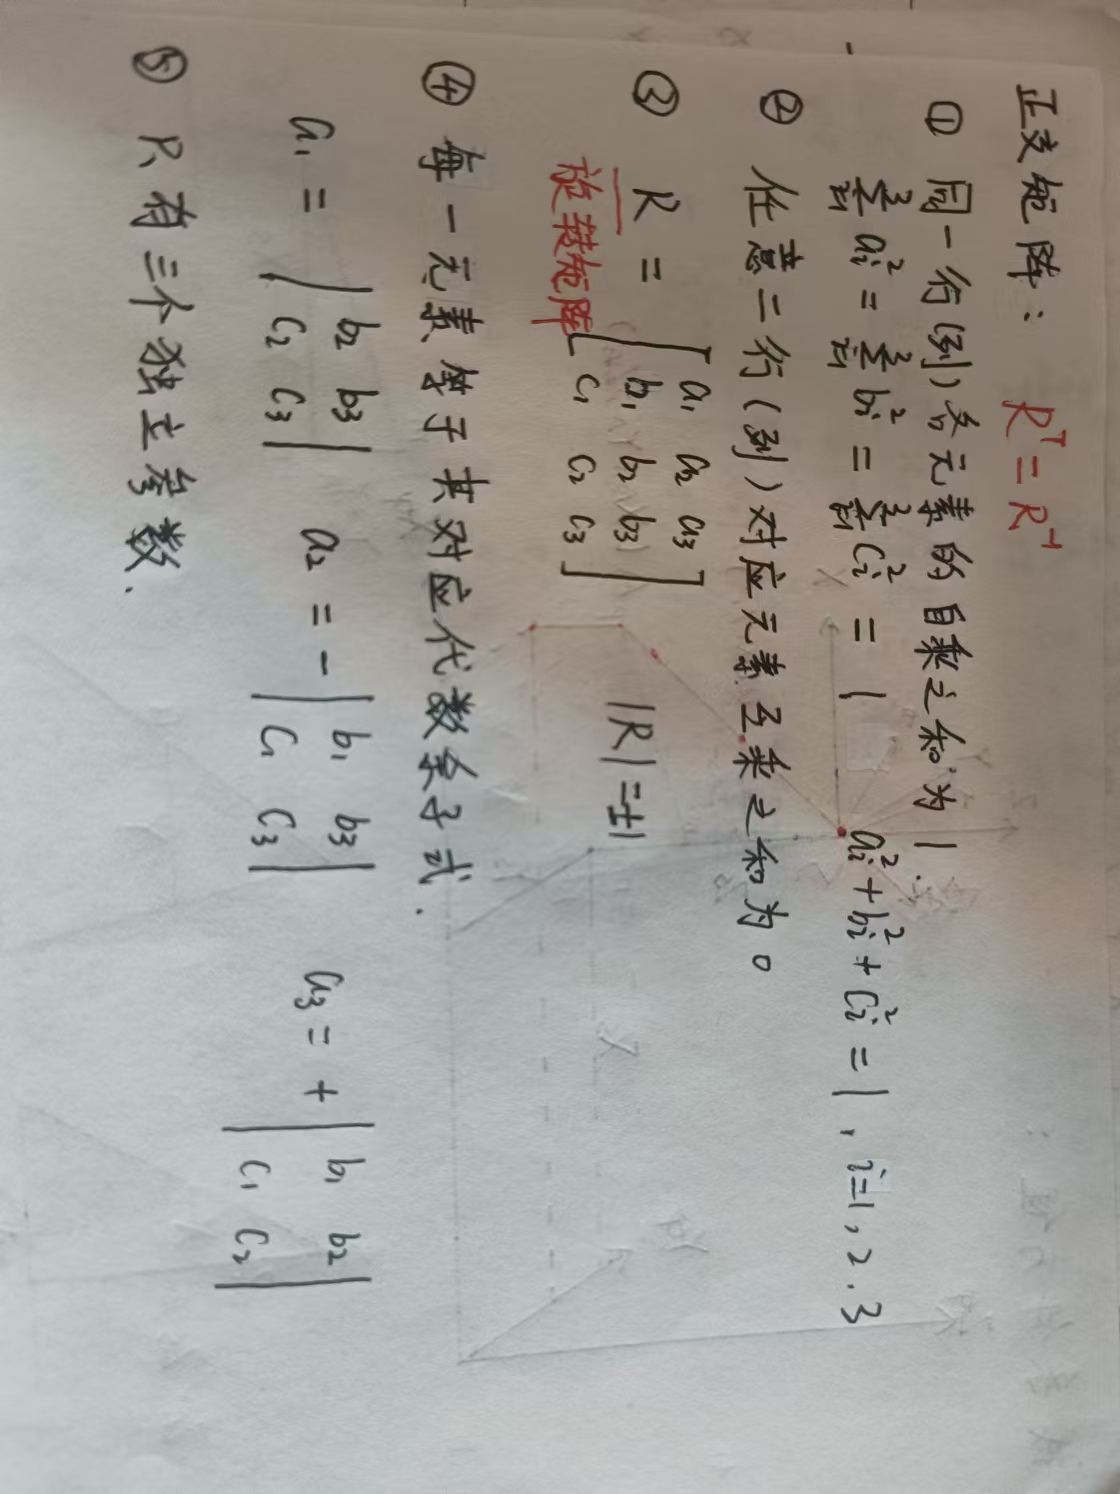 正交矩阵: R^T = R^-1
① 同一行(列)各元素的自乘之和为1.
∑_{i=1}^{3} a_i^2 = ∑_{i=1}^{3} b_i^2 = ∑_{i=1}^{3} c_i^2 = 1 a_i^2 + b_i^2 + c_i^2 = 1, i=1, 2. 3
② 任意二行(列)对应元素互乘之和为0
③ R = [ a1 a2 a3
b1 b2 b3
c1 c2 c3 ] |R| = ±1
旋转矩阵
④ 每一元素等于其对应代数余子式.
a1 = | b2 b3 | a2 = - | b1 b3 | a3 = + | b1 b2 |
| c2 c3 | | c1 c3 | | c1 c2 |
⑤ R 有三个独立参数.